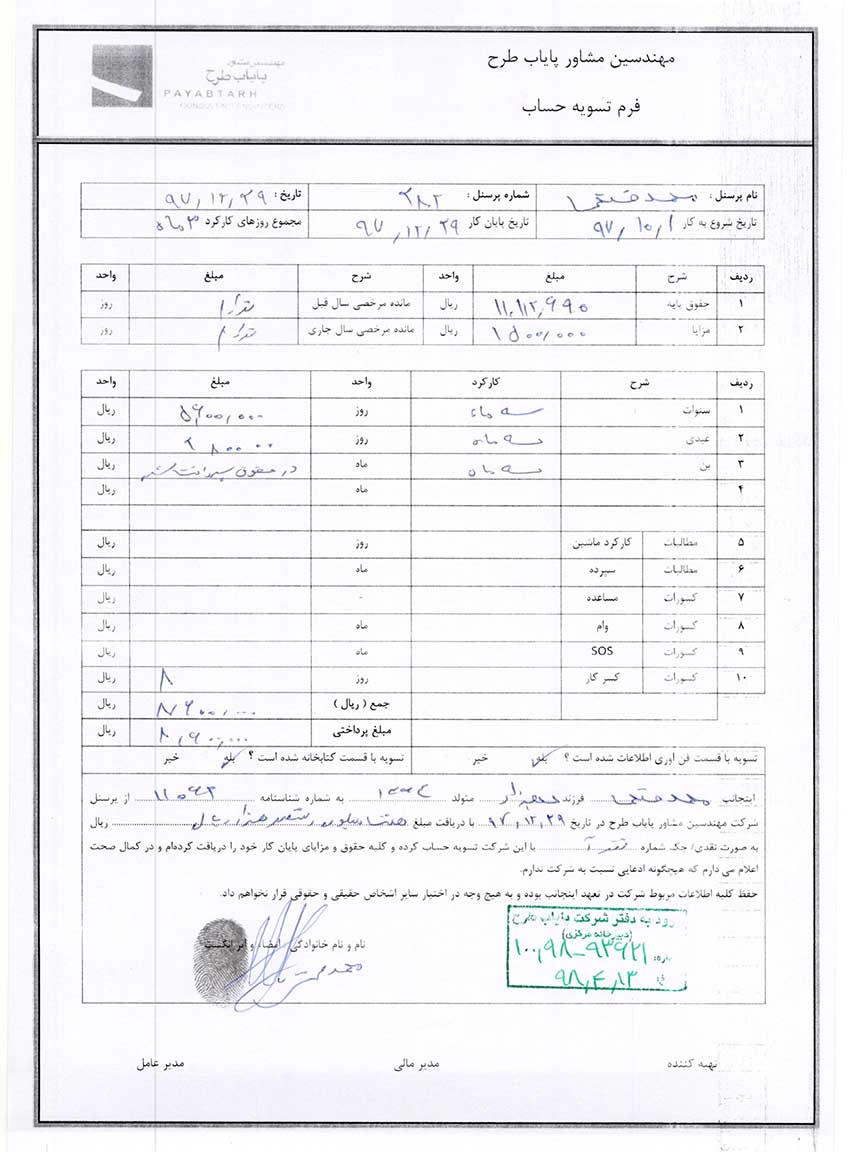 مهندسین مشاور پایاب طرح
مهندسین مشاور
پایاب طرح
PAYABTARH
CONSULTANT ENGINEERS
فرم تسویه حساب
نام پرسنل : محمد شماره پرسنل : ۳۸۲ تاریخ : ۹۷,۱۲,۲۹
تاریخ شروع به کار ۹۷,۱۰,۱ تاریخ پایان کار ۹۷,۱۲,۲۹ مجموع روزهای کارکرد ۳ ماه
ردیف شرح مبلغ واحد شرح مبلغ واحد
۱ حقوق پایه ۱۱,۱۱۲,۹۹۵ ریال مانده مرخصی سال قبل ندارد روز
۲ مزایا ۱۵۰۰,۰۰۰ ریال مانده مرخصی سال جاری ندارد روز
ردیف شرح کارکرد واحد مبلغ واحد
۱ سنوات سه ماه روز ریال
۲ عیدی سه ماه روز ریال
۳ بن سه ماه ماه در حقوق پرداخت شد ریال
۴ ماه ریال
۵ مطالبات کارکرد ماشین روز ریال
۶ مطالبات سپرده ماه ریال
۷ کسورات مساعده - ریال
۸ کسورات وام ماه ریال
۹ کسورات SOS ماه ریال
۱۰ کسورات کسر کار روز ریال
جمع ( ریال ) ریال
مبلغ پرداختی ریال
تسویه با قسمت فن آوری اطلاعات شده است ؟ بلی خیر تسویه با قسمت کتابخانه شده است ؟ بلی خیر
اینجانب محمد فرزند متولد به شماره شناسنامه ۱۱۵۹۲ از پرسنل
شرکت مهندسین مشاور پایاب طرح در تاریخ ۹۷,۱۲,۲۹ با دریافت مبلغ هشت میلیون و ششصد هزار ریال ریال
به صورت نقدی/ چک شماره با این شرکت تسویه حساب کرده و کلیه حقوق و مزایای پایان کار خود را دریافت کرده‌ام و در کمال صحت
اعلام می دارم که هیچگونه ادعایی نسبت به شرکت ندارم.
حفظ کلیه اطلاعات مربوط شرکت در تعهد اینجانب بوده و به هیچ وجه در اختیار سایر اشخاص حقیقی و حقوقی قرار نخواهم داد.
نام و نام خانوادگی امضاء و اثر انگشت
ورود به دفتر شرکت پایاب طرح
(دبیرخانه مرکزی)
۱۰۰,۹۸-۹۳۶۲۱
۹۸,۴,۱۳
تهیه کننده مدیر مالی مدیر عامل